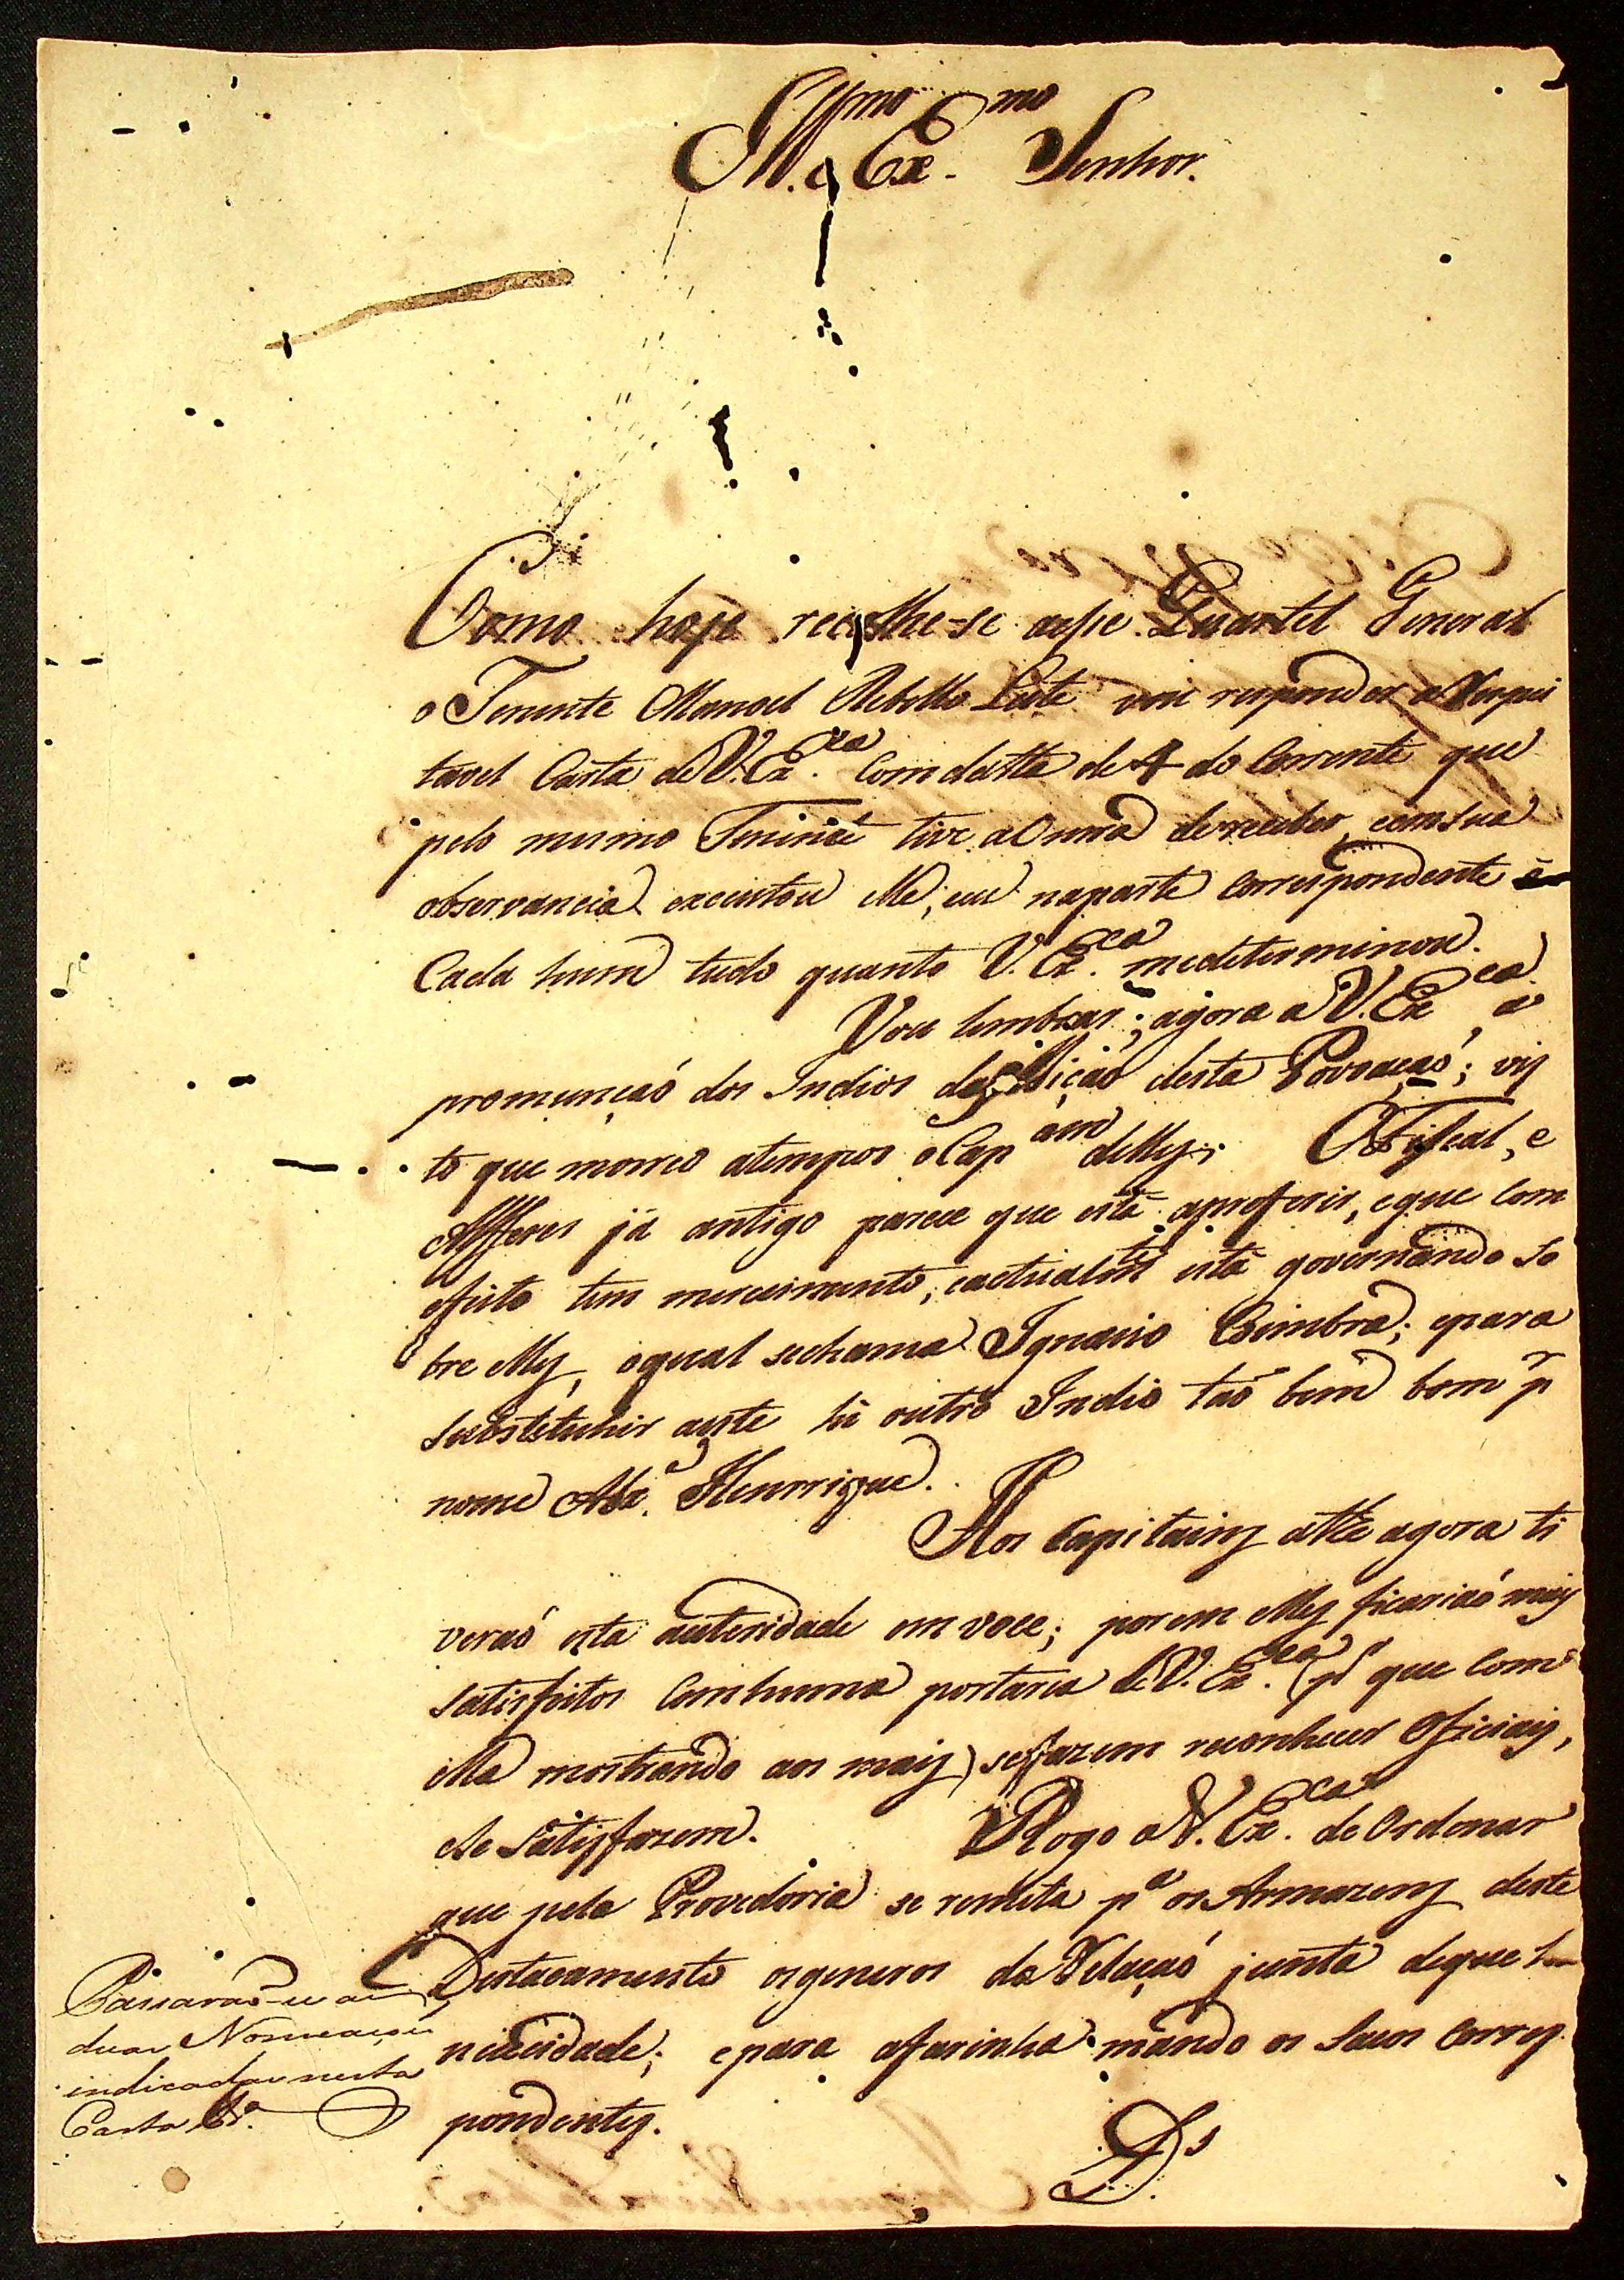 Ill.mo e Ex.mo Senhor.
Como hoje recolhe-se aesse Quartel General
o Tenente Manoel Rebello Leite vou responder a Respei
tavel Carta de V. Ex.ca Com datta de 4 do Corrente que
pelo mesmo Tenente tive a Onrra dereceber, eemsua
observancia executou elle, eeu naparte Correspondente á
Cada hum tudo quanto V. Ex.ca medeterminou.
Vou lembrar; agora a V. Ex.ca a
promunçaó dos Indios da Missaó desta Povoaçaó; viz
to que morreo atempos o Cap.am delles; O Fiscal, e
Alfferes já antigo parece que está apreferir, eque Com
efeito tem merecimento, eactualm.te está governando so
bre elles, oqual sechama Ignacio Coimbra; epara
substetuhir aeste há outro Indio taó bem bom p.r
nome Alx.e Henrrique.
Aos Capitains athe agora ti
veraó esta autoridade em voce; porem elles ficariaó mais
satisfeitos Comhuma portaria de V. Ex.ca p.a que Com
ella mostrando aos mais, sefazem reconhecer Oficiais,
ese satisfazem. Rogo a V. Ex.ca de Ordenar
que pela Provedoria se remeta p.a os Armazens deste
Destacamento osgeneros da Relaçaó junta deque há
necicidade; epara afarinha mando os sacos Corres
pondentes.
D.s
Passaraõ-se as
duas Nomeaçoens
indicadas nesta
Carta